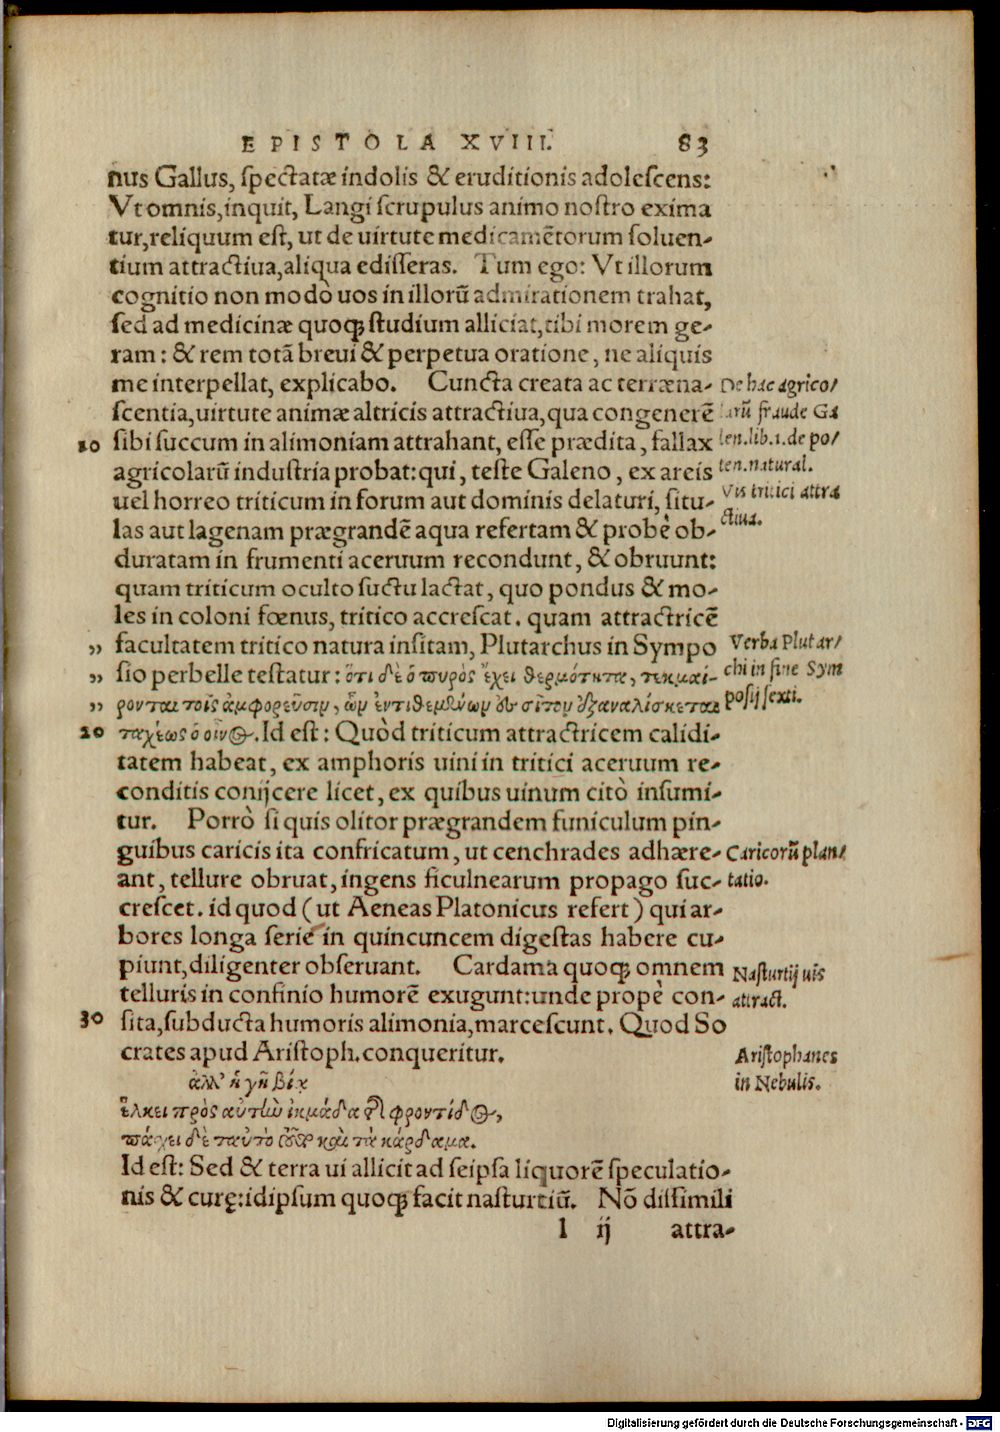 EPISTOLA XVIII. 83
nus Gallus, spectatæ indolis & eruditionis adolescens:
Vt omnis, inquit, Langi scrupulus animo nostro exima
tur, reliquum est, ut de uirtute medicamẽtorum soluen-
tium attractiua, aliqua edisseras. Tum ego: Vt illorum
cognitio non modò uos in illorũ admirationem trahat,
sed ad medicinæ quoq; studium alliciat, tibi morem ge-
ram: & rem totã breui & perpetua oratione, ne aliquis
me interpellat, explicabo. Cuncta creata ac terræna-
De hac agrico/
scentia, uirtute animæ altricis attractiua, qua congenerẽ
larũ fraude Ga
10 sibi succum in alimoniam attrahant, esse prædita, fallax
len.lib.1.de po/
agricolarũ industria probat: qui, teste Galeno, ex areis
ten.natural.
uel horreo triticum in forum aut dominis delaturi, situ-
Vis tritici attra
las aut lagenam prægrandẽ aqua refertam & probè ob-
ctiua.
duratam in frumenti aceruum recondunt, & obruunt:
quam triticum oculto suctu lactat, quo pondus & mo-
les in coloni fœnus, tritico accrescat. quam attractricẽ
„ facultatem tritico natura insitam, Plutarchus in Sympo
Verba Plutar/
„ sio perbelle testatur: ὅτι δὲ ὁ πυρὸς ἔχει θερμότητα, τεκμαί-
chi in fine Sym
„ ρονται τοῖς ἀμφορεῦσιν, ὧν ἐντιθεμένων εἰς σῖτον ἐξαναλίσκεται
posij sexti.
20 ταχέως ὁ οἶνος. Id est: Quòd triticum attractricem calidi-
tatem habeat, ex amphoris uini in tritici aceruum re-
conditis conijcere licet, ex quibus uinum citò insumi-
tur. Porrò si quis olitor prægrandem funiculum pin-
guibus caricis ita confricatum, ut cenchrades adhære-
Caricorũ plan/
ant, tellure obruat, ingens ficulnearum propago suc-
tatio.
crescet. id quod (ut Aeneas Platonicus refert) qui ar-
bores longa serie in quincuncem digestas habere cu-
piunt, diligenter obseruant. Cardama quoq; omnem
Nasturtij uis
telluris in confinio humorẽ exugunt: unde propè con-
attract.
30 sita, subducta humoris alimonia, marcescunt. Quod So
crates apud Aristoph. conqueritur.
Aristophanes
in Nebulis.
ἀλλ’ ἡ γῆ βίᾳ
ἕλκει πρὸς αὑτὴν ἰκμάδα τῆς φροντίδος,
πάχει δὲ ταὐτὸ τοῦτο καὶ τὰ κάρδαμα.
Id est: Sed & terra ui allicit ad seipsa liquorẽ speculatio-
nis & curę: idipsum quoq; facit nasturtiũ. Nõ dissimili
l ij attra-
Digitalisierung gefördert durch die Deutsche Forschungsgemeinschaft - DFG